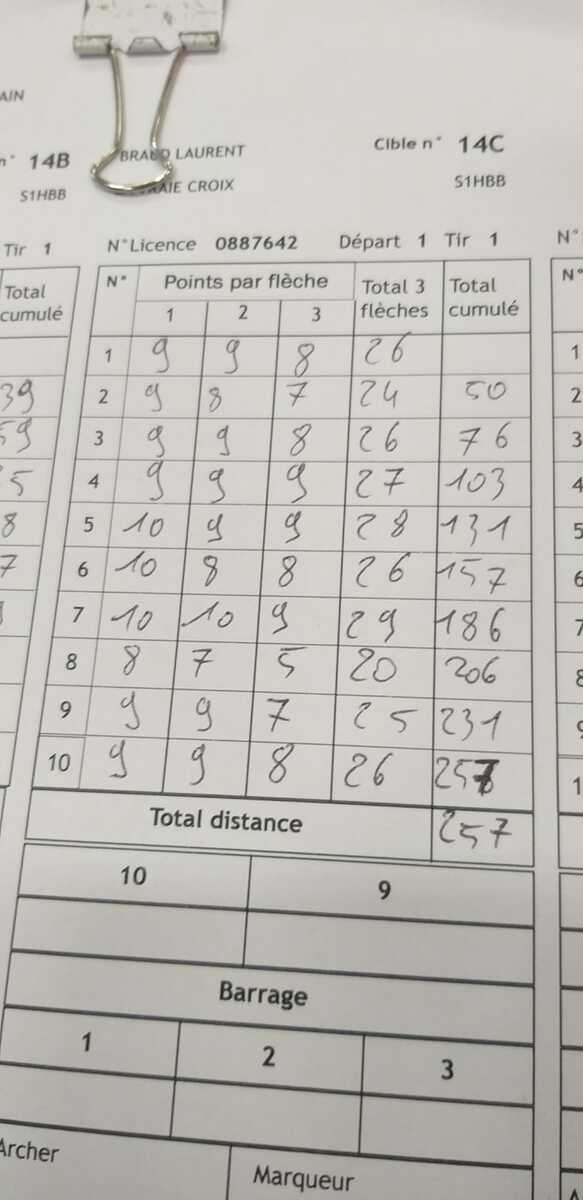 AIN
n° 14B
BRAUD LAURENT
Cible n° 14C
S1HBB
RAIE CROIX
S1HBB
Tir 1
N°Licence 0887642 Départ 1 Tir 1
N°
Total cumulé
N° Points par flèche Total 3 flèches Total cumulé
N°
1 2 3
1 9 9 8 26
1
39 2 9 8 7 24 50
2
59 3 9 9 8 26 76
3
5 4 9 9 9 27 103
4
8 5 10 9 9 28 131
5
7 6 10 8 8 26 157
6
7 10 10 9 29 186
7
8 8 7 5 20 206
8
9 9 9 7 25 231
10 9 9 8 26 257
1
Total distance 257
10 9
Barrage
1 2 3
Archer
Marqueur